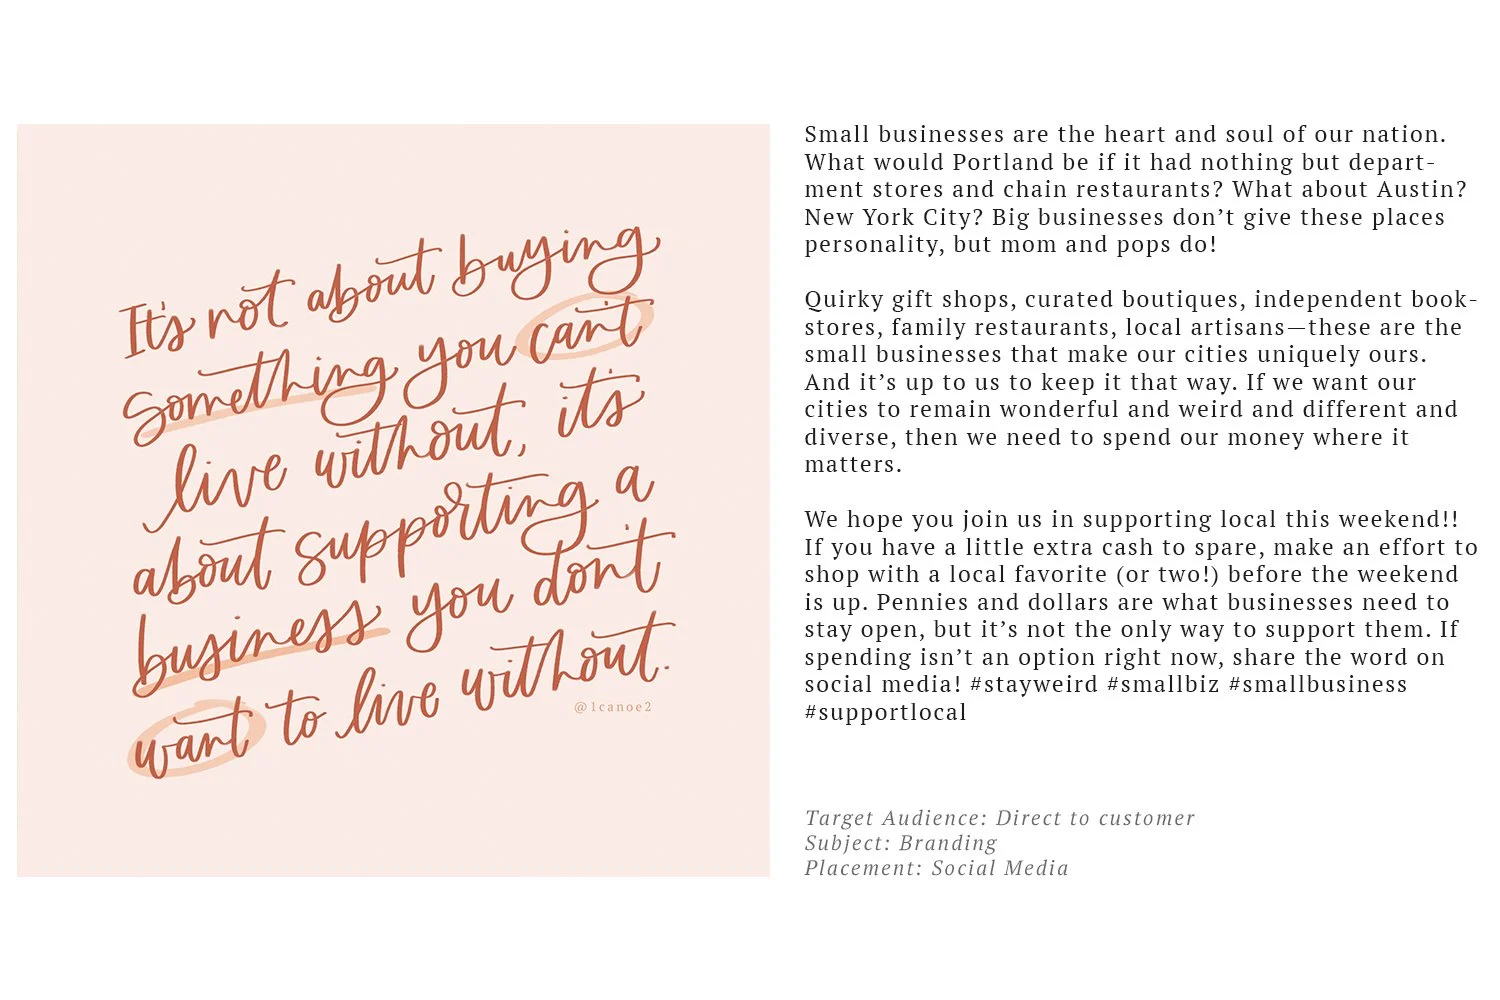 It's not about buying
something you can't
live without, it's
about supporting a
business you don't
want to live without.
@1canoe2
Small businesses are the heart and soul of our nation.
What would Portland be if it had nothing but depart-
ment stores and chain restaurants? What about Austin?
New York City? Big businesses don’t give these places
personality, but mom and pops do!
Quirky gift shops, curated boutiques, independent book-
stores, family restaurants, local artisans—these are the
small businesses that make our cities uniquely ours.
And it’s up to us to keep it that way. If we want our
cities to remain wonderful and weird and different and
diverse, then we need to spend our money where it
matters.
We hope you join us in supporting local this weekend!!
If you have a little extra cash to spare, make an effort to
shop with a local favorite (or two!) before the weekend
is up. Pennies and dollars are what businesses need to
stay open, but it’s not the only way to support them. If
spending isn’t an option right now, share the word on
social media! #stayweird #smallbiz #smallbusiness
#supportlocal
Target Audience: Direct to customer
Subject: Branding
Placement: Social Media